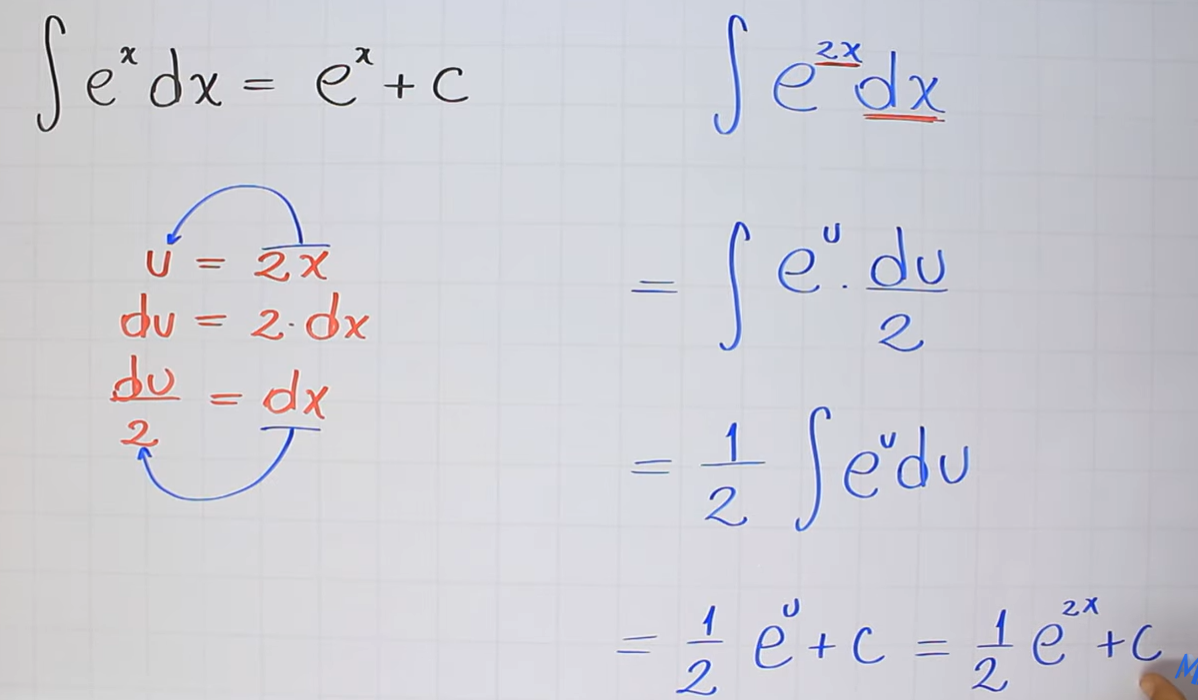 ∫ eˣ dx = eˣ + c
u = 2x
du = 2·dx
du/2 = dx
∫ e²ˣ dx
= ∫ eᵘ · du/2
= 1/2 ∫ eᵘ du
= 1/2 eᵘ + c = 1/2 e²ˣ + c
M